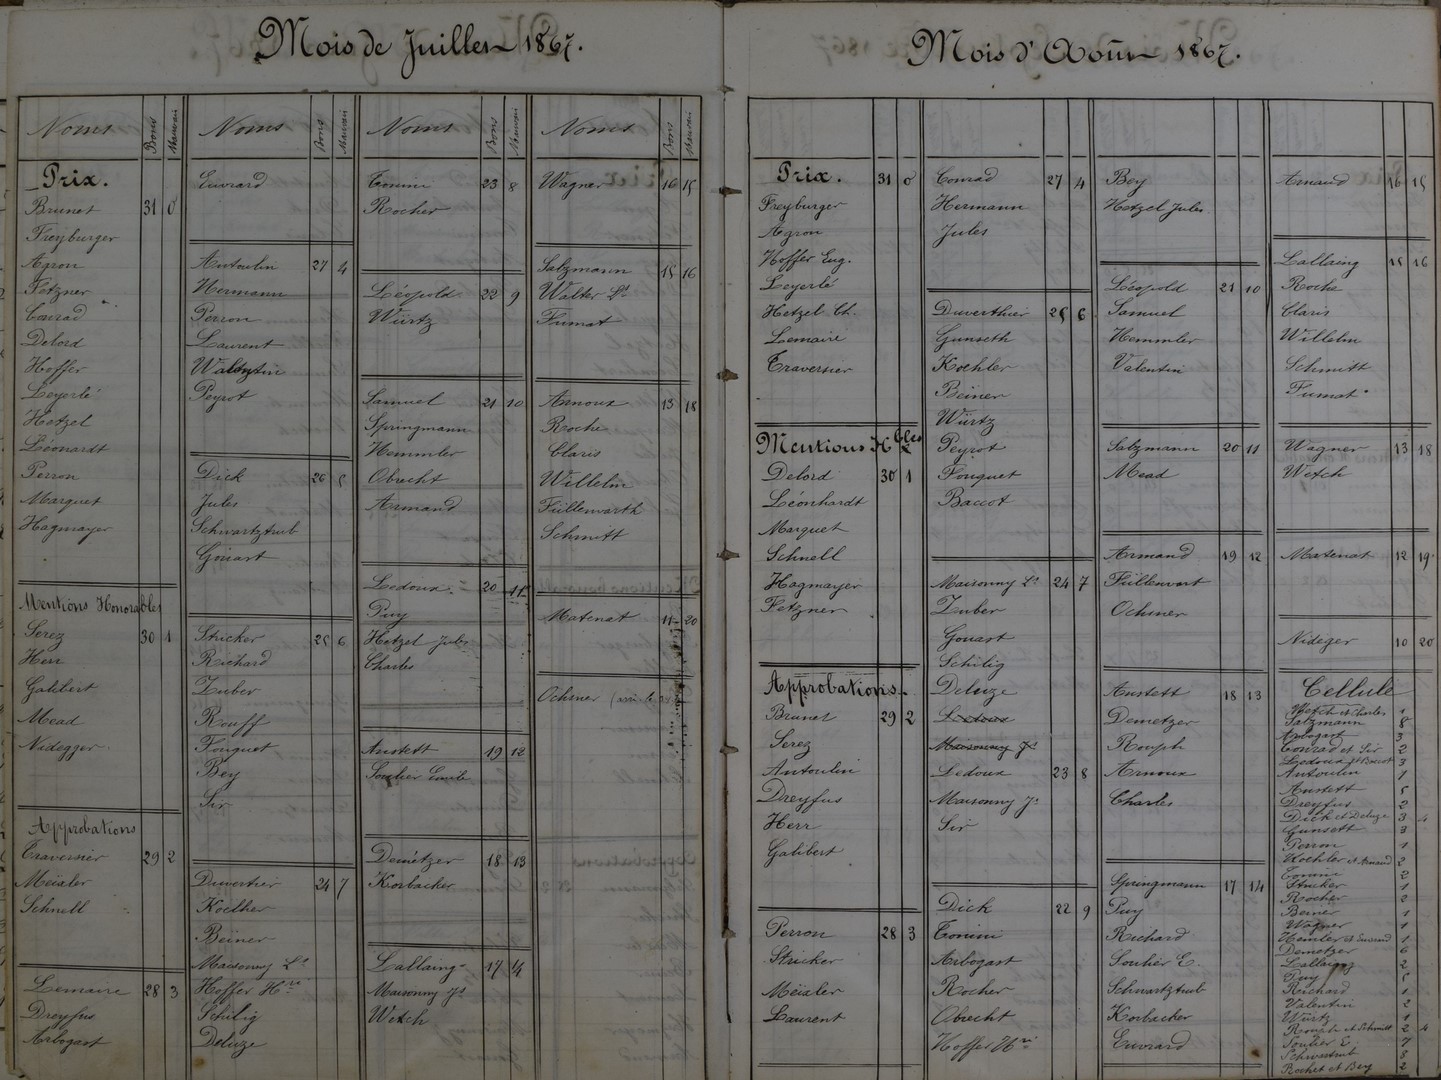 Mois de Juillet 1867.
Noms Bons Mauvais
Prix.
Brunet 31 0
Freyburger
Agron
Fetzner
Conrad
Delord
Hoffer
Leyerlé
Hetzel
Léonardt
Perron
Marquet
Hagmayer
Mentions Honorables
Serez 30 1
Herr
Galibert
Mead
Nidegger.
Approbations
Traversier 29 2
Meixler
Schnell
Lemaire 28 3
Dreyfus
Arbogast
Noms Bons Mauvais
Euvrard
Antoulin 27 4
Hermann
Perron
Laurent
Walentin
Peyrot
Dick 26 5
Jules
Schwartztrub
Gouart
Stricker 25 6
Richard
Zuber
Rouff
Fouquet
Bey
Sir
Duvertier 24 7
Koelher
Beiner
Maisonny Lt
Hoffer Hri
Schilig
Deluze
Noms Bons Mauvais
Tonini 23 8
Rocher
Léopold 22 9
Würtz
Samuel 21 10
Springmann
Hemmler
Obrecht
Armand
Ledoux. 20 11
Puy
Hetzel Jules
Charles
Anstett 19 12
Soulier Emile
Demetzer 18 13
Korbacker
Lallaing 17 14
Maisonny Js
Wetch
Noms Bons Mauvais
Wagner 16 15
Salzmann 15 16
Walter Lt
Fumat
Arnoux 13 18
Roche
Claris
Willelm
Füllenvarth
Schmitt
Matenat 11 20
Ochsner
Mois d'Août 1867.
Prix. 31 0
Freyburger
Agron
Hoffer Eug.
Leyerlé
Hetzel Ch.
Lemaire
Traversier
Mentions Hbles
Delord 30 1
Léonhardt
Marquet
Schnell
Hagmayer
Fetzner
Approbations
Brunet 29 2
Serez
Antoulin
Dreyfus
Herr
Galibert
Perron 28 3
Stricker
Meixler
Laurent
Conrad 27 4
Hermann
Jules
Duverthier 25 6
Gunseth
Koehler
Beiner
Würtz
Peyrot
Fouquet
Baccot
Maisonny Lt 24 7
Zuber
Gouart
Schilig
Deluze
Ledoux
Maisonny Js
Ledoux 23 8
Maisonny Js
Sir
Dick 22 9
Tonini
Arbogast
Rocher
Obrecht
Hoffer Hri
Bey
Hetzel Jules
Léopold 21 10
Samuel
Hemmler
Valentin
Salzmann 20 11
Mead
Armand 19 12
Füllenvart
Ochsner
Anstett 18 13
Demetzer
Rouph
Arnoux
Charles
Springmann 17 14
Puy
Richard
Soulier E.
Schwartztrub
Korbacker
Euvrard
Arnaud 16 15
Lallaing 15 16
Roche
Claris
Willelm
Schmitt
Fumat
Wagner 13 18
Wetch
Matenat 12 19
Nideger 10 20
Cellule
Wetch et Charles 1
Salzmann 8
Arbogast 3
Conrad et Sir 2
Ledoux et Baccot 3
Antoulin 1
Anstett 5
Dreyfus 2
Dick et Deluze 3 4
Gunsett 3
Perron 1
Koehler et Armand 2
Tonini 2
Stricker 1
Rocher 2
Beiner 1
Wagner 1
Hemler et Euvrard 1
Demetzer 6
Lallaing 2
Puy 5
Richard 1
Valentin 2
Würtz 1
Rouph et Schmitt 2 4
Soulier E. 7
Schwartrub 8
Rochet et Bey 2